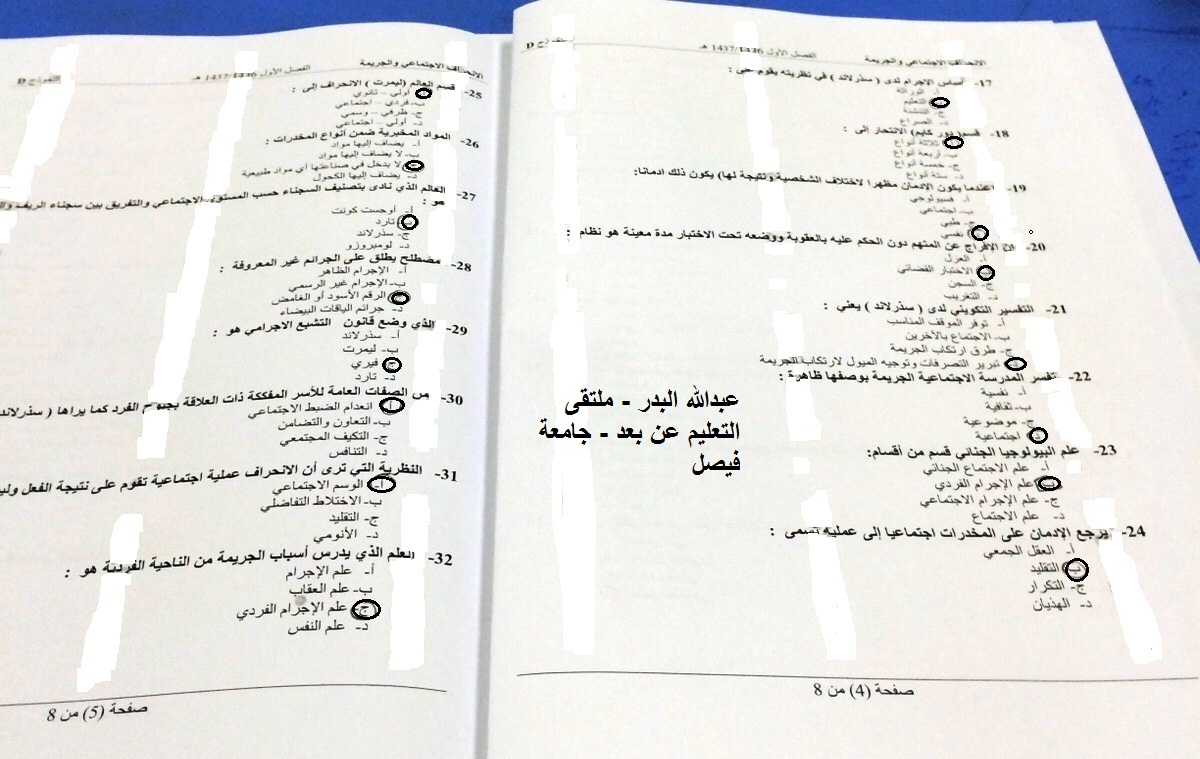 الانحراف الاجتماعي والجريمة
الفصل الأول 1437/1436 هـ
النموذج D
17- أساس الاجرام لدى ( سذرلاند ) في نظريته يقوم على :
أ- الوراثة
التعليم
ج- التنشئة
د- الصراع
18- قسم( دور كايم) الانتحار إلى :
ثلاثة أنواع
ب- أربعة أنواع
ج- خمسة أنواع
د- ستة أنواع
19- عندما يكون الادمان مظهرا لاختلاف الشخصية ونتيجة لها) يكون ذلك ادمانا:
أ- فسيولوجي
ب- اجتماعي
ج- طبي
نفسي
20- ان الافراج عن المتهم دون الحكم عليه بالعقوبة ووضعه تحت الاختبار مدة معينة هو نظام :
أ- العزل
الاختبار القضائي
ج- السجن
د- التغريب
21- التفسير التكويني لدى ( سذرلاند ) يعني :
أ- توفر الموقف المناسب
ب- الاجتماع بالآخرين
ج- طرق ارتكاب الجريمة
تبرير التصرفات وتوجيه الميول لارتكاب الجريمة
22- تفسر المدرسة الاجتماعية الجريمة بوصفها ظاهرة :
أ- نفسية
ب- ثقافية
ج- موضوعية
د- اجتماعية
23- علم البيولوجيا الجنائي قسم من أقسام:
أ- علم الاجتماع الجنائي
ب- علم الإجرام الفردي
ج- علم الإجرام الاجتماعي
د- علم الاجتماع
24- يرجع الإدمان على المخدرات اجتماعيا إلى عملية تسمى :
أ- العقل الجمعي
ب- التقليد
ج- التكرار
د- الهذيان
صفحة (4) من 8
عبدالله البدر - ملتقى
التعليم عن بعد - جامعة
فيصل
الانحراف الاجتماعي والجريمة
الفصل الأول 1437/1436 هـ
النموذج D
25- قسم العالم (ليمرت ) الانحراف إلى :
أولي – ثانوي
ب- فردي – اجتماعي
ج- ظرفي – وسمي
د- أولي – اجتماعي
26- المواد المخبرية ضمن أنواع المخدرات :
أ- يضاف إليها مواد
ب- لا يضاف إليها مواد
لا يدخل في صناعتها أي مواد طبيعية
د- يضاف إليها الكحول
27- العالم الذي نادى بتصنيف السجناء حسب المستوى الاجتماعي والتفريق بين سجناء الريف
هو :
أ- أوجست كونت
تارد
ج- سذرلاند
د- لومبروزو
28- مصطلح يطلق على الجرائم غير المعروفة :
أ- الإجرام الظاهر
ب- الإجرام غير الرسمي
الرقم الأسود أو الغامض
د- جرائم الياقات البيضاء
29- الذي وضع قانون التشبع الاجرامي هو :
أ- سذرلاند
ب- ليمرت
ج- فيري
د- تارد
30- من الصفات العامة للأسر المفككة ذات العلاقة بجنوح الفرد كما يراها ( سذرلاند
أ- انعدام الضبط الاجتماعي
ب- التعاون والتضامن
ج- التكيف المجتمعي
د- التنافس
31- النظرية التي ترى أن الانحراف عملية اجتماعية تقوم على نتيجة الفعل
أ- الوسم الاجتماعي
ب- الاختلاط التفاضلي
ج- التقليد
د- الأنومي
32- العلم الذي يدرس أسباب الجريمة من الناحية الفردية هو :
أ- علم الإجرام
ب- علم العقاب
ج- علم الإجرام الفردي
د- علم النفس
صفحة (5) من 8